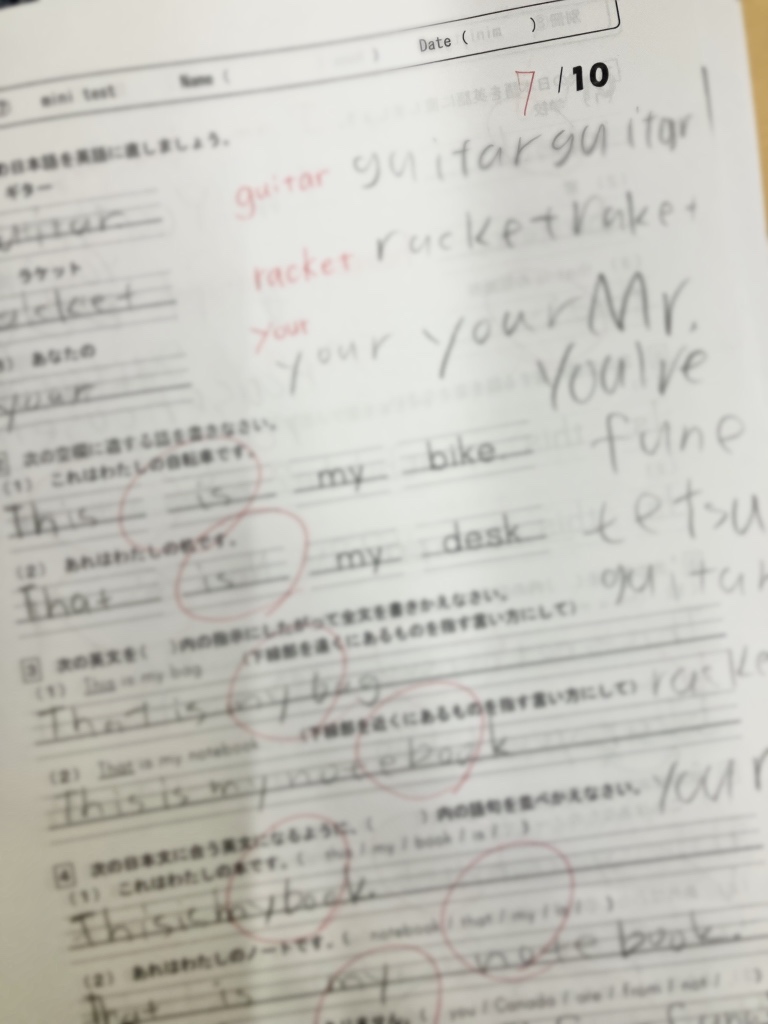 mini test Name ( ) Date ( )
7 /10
の日本語を英語に直しましょう。
ギター
guitar guitar guitar
ラケット
racket racket raket
あなたの
your
your your your Mr.
You're
次の空欄に適する語を書きなさい。
(1) これはわたしの自転車です。
This is my bike
fune
(2) あれはわたしの机です。
That is my desk
tetsu
guitar
3 次の英文を( )内の指示にしたがって全文を書きかえなさい。
(1) This is my bag (下線部を遠くにあるものを指す言い方にして)
That is my bag
(2) That is my notebook (下線部を近くにあるものを指す言い方にして)
This is my notebook
your
4 次の日本文に合う英文になるように、( )内の語句を並べかえなさい。
(1) これはわたしの本です。( this / my / book / is / )
This is my book.
(2) あれはわたしのノートです。( notebook / that / my / is / )
That is my note book.
you / Canada / are / from / not /